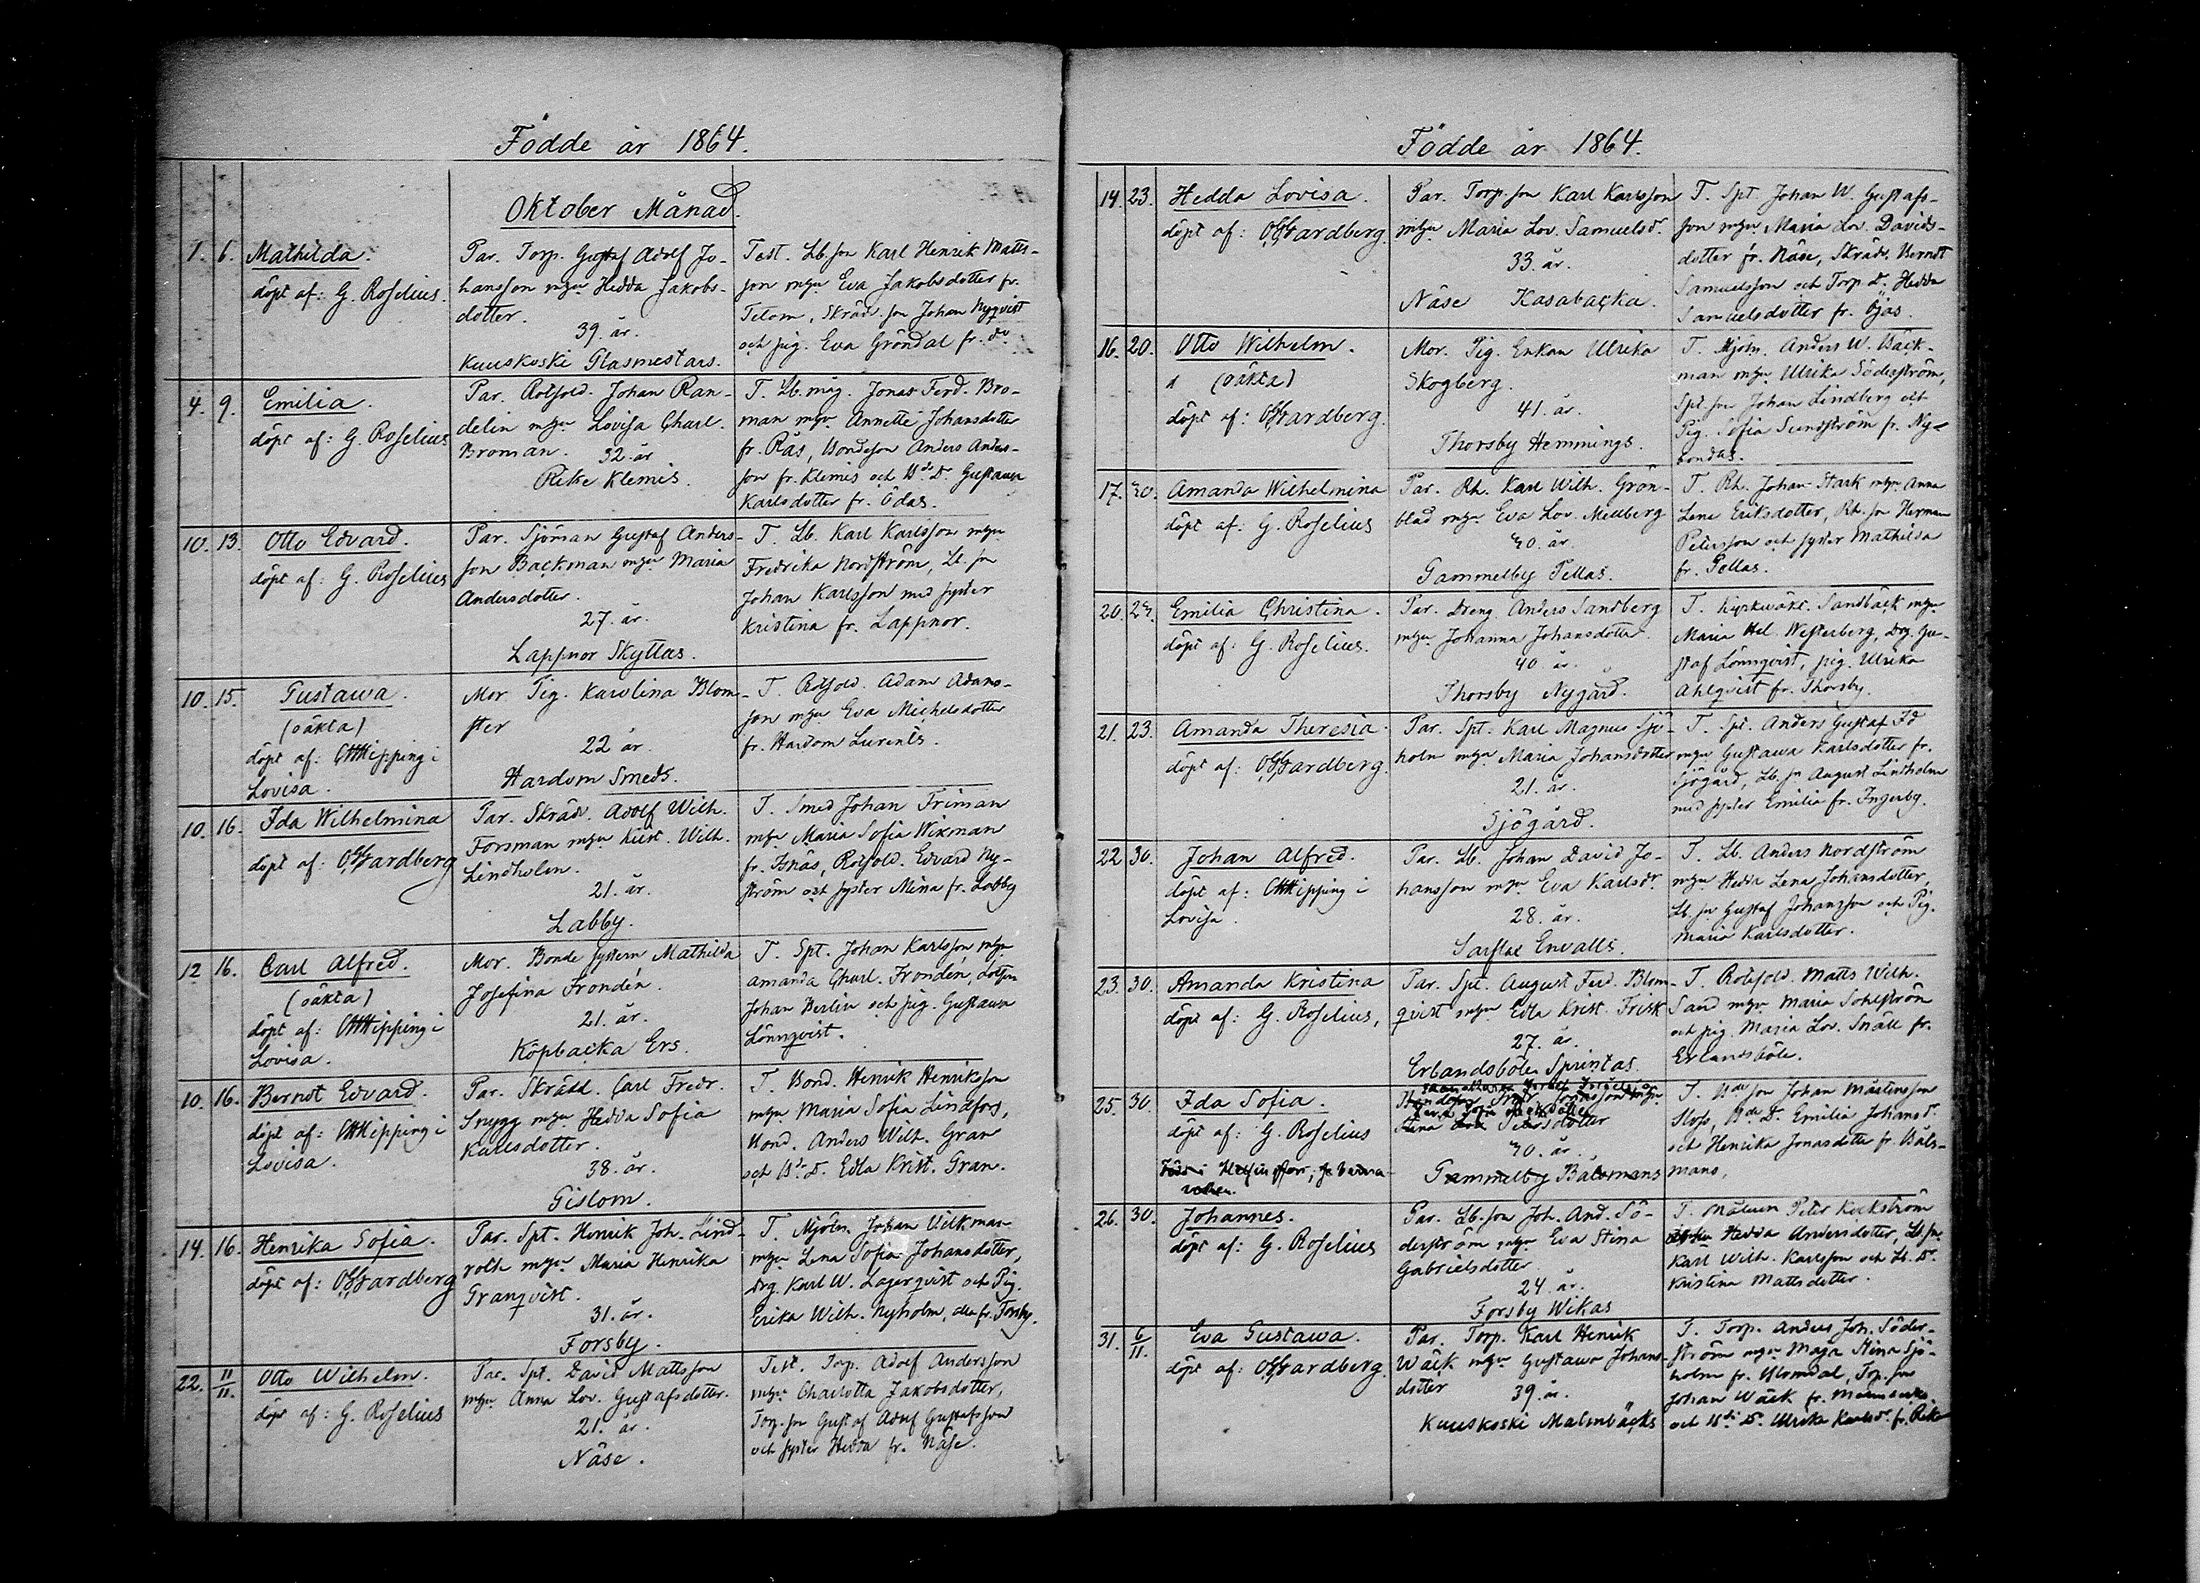 Födde år 1864.
Oktober Månad.
1. 6. Mathilda.
döpt af: G. Roselius.
Par. Torp. Gustaf Adolf Jo-
hansson m. Hedda Jakobs-
dotter.
39. år.
Kuuskoski Glasmestars.
Test. Lb. son Karl Henrik Matts-
son m. Eva Jakobsdotter fr.
Tetom, Skräd. son Johan Nyqvist
och pig. Eva Gröndal fr. do
4. 9. Emilia.
döpt af: G. Roselius
Par. Johan Ran-
delin m. Lovisa Charl.
Broman. 32. år
Rike Klemis.
T. Lb. måg. Jonas Ferd. Bro-
man m. Annette Johansdotter
fr. Rås, Bondeson Anders Anders-
son fr. Klemis och Bde D. Gustawa
Karlsdotter fr. Ödas.
10. 13. Otto Edvard.
döpt af: G. Roselius
Par. Sjöman Gustaf Anders-
son Backman m. Maria
Andersdotter.
27. år.
Lappnor Skyttas.
T. Lb. Karl Karlsson m.
Fredrika Nordström, Lb. son
Johan Karlsson med syster
Kristina fr. Lappnor.
10. 15. Gustawa.
(oäkta)
döpt af: Kipping i
Lovisa.
Mor Pig. Karolina Blom-
ster
22 år.
Hardom Smeds.
T. Adam Adams-
son m. Eva Michelsdotter
fr. Hardom Lurents.
10. 16. Ida Wilhelmina
döpt af: Gardberg
Par. Skräd. Adolf Wilh.
Forsman m. Wilh.
Lindholm.
21. år.
Labby.
T. Smed Johan Friman
m. Maria Sofia Wikman
fr. Isnäs, Edvard Ny-
ström och syster Mina fr. Labby
12 16. Carl Alfred.
(oäkta)
döpt af: Kipping i
Lovisa.
Mor. Bonde systern Mathilda
Josefina Frondén.
21. år.
Köpbacka Ers.
T. Spt. Johan Karlsson m.
Amanda Charl. Frondén, Lotsen
Johan Berlin och pig. Gustawa
Lönnqvist.
10. 16. Berndt Edvard.
döpt af: Kipping i
Lovisa.
Par. Skrädd. Carl Fredr.
Snygg m. Hedda Sofia
Karlsdotter.
38. år.
Gislom.
T. Bond. Henrik Henriksson
m. Maria Sofia Lindfors,
Bond. Anders Wilh. Gran
och Bde D. Edla Krist. Gran.
14. 16. Henrika Sofia.
döpt af: Gardberg
Par. Spt. Henrik Joh. Lind-
roth m. Maria Henrika
Granqvist.
31. år.
Forsby.
T. Mjöln. Johan Wilkman
m. Lena Sofia Johansdotter,
Drg. Karl W. Lagerqvist och Pig.
Erika Wilh. Nyholm, alla fr. Forsby.
22. 11/11. Otto Wilhelm.
döpt af: G. Roselius
Par. Spt. David Mattsson
m. Anna Lov. Gustafsdotter.
21. år.
Näse.
Test. Torp. Adolf Andersson
m. Charlotta Jakobsdotter,
Torp. son Gustaf Adolf Gustafsson
och syster Hedda fr. Näse.
Födde år 1864.
14. 23. Hedda Lovisa.
döpt af: Gardberg.
Par. Torp. son Karl Karlsson
m. Maria Lov. Samuelsdr.
33. år.
Näse Kasabacka.
T. Spt. Johan W. Gustafs-
son m. Maria Lov. Davids-
dotter fr. Näse, Skräd. Berndt
Samuelsson och Torp. D. Hedda
Samuelsdotter fr. Öjas.
16. 20. Otto Wilhelm.
(oäkta)
döpt af: Gardberg.
Mor. Pig. Enkan Ulrika
Skogberg.
41. år.
Thorsby Hemmings.
T. Mjöln. Anders W. Bäck-
man m. Ulrika Söderström,
Spt. son Johan Lindberg och
Pig. Sofia Sundström fr. Ny-
bondas.
17. 30. Amanda Wilhelmina
döpt af: G. Roselius
Par. Rh. Karl Wilh. Grön-
blad m. Eva Lov. Mellberg
30. år.
Gammelby Pellas.
T. Rh. Johan Stark m. Anna
Lena Eriksdotter, Rh. son Herman
Petersson och syster Mathilda
fr. Pellas.
20. 23. Emilia Christina.
döpt af: G. Roselius.
Par. Dreng Anders Sandberg
m. Johanna Johansdotter.
40. år.
Thorsby Nygård.
T. Kyrkwäkt. Sandbäck m.
Maria Hel. Westerberg, Drg. Gu-
staf Lönnqvist, pig. Ulrika
Ahlqvist fr. Thorsby.
21. 23. Amanda Theresia.
döpt af: Gardberg.
Par. Spt. Karl Magnus Sjö-
holm m. Maria Johansdotter
21. år.
Sjögård.
T. Spt. Anders Gustaf Fd
m. Gustawa Karlsdotter fr.
Sjögård, Lb. sn August Lindholm
med syster Emilia fr. Ingerby.
22 30. Johan Alfred.
döpt af: Kipping i
Lovisa.
Par. Lb. Johan David Jo-
hansson m. Eva Karlsdr.
28. år.
Sarflax Envalls.
T. Lb. Anders Nordström
m. Hedda Lena Johansdotter,
Lb. sn Gustaf Johansson och Pig.
Maria Karlsdotter.
23. 30. Amanda Kristina
döpt af: G. Roselius,
Par. Spt. August Ferd. Blom-
qvist m. Edla Krist. Frisk
27. år.
Erlandsböle Sprintas
T. Matts Wilh.
Sand m. Maria Sohlström
och pig. Maria Lov. Snäll fr.
Erlandsböle.
25. 30. Ida Sofia.
döpt af: G. Roselius
Född i Helsingfors,
30. år.
Gammelby Bålsmans
T. Bde son Johan Mårtensson
Stops, Bde D. Emilia Johansdr.
och Henrika Jonasdotter fr. Båls-
mans,
26. 30. Johannes.
döpt af: G. Roselius
Par. Lb. son Joh. And. Sö-
derström m. Eva Stina
Gabrielsdotter
24 år.
Forsby Wikas
T. Målaren Peter Kockström
Hedda Andersdotter, Lb. sn
Karl Wilh. Karlsson och Lb. Dr.
Kristina Mattsdotter.
31. 6/11. Eva Gustawa.
döpt af: Gardberg.
Par. Torp. Karl Henrik
Wäck m. Gustawa Johans-
dotter
39. år.
Kuuskoski Malmbäcks
T. Torp. Anders Joh. Söder-
ström m. Maja Stina Sjö-
holm fr. Blomdal, Torp. son
Johan Wäck fr.
och Bde D. Ulrika Karlsdr. fr. Rike